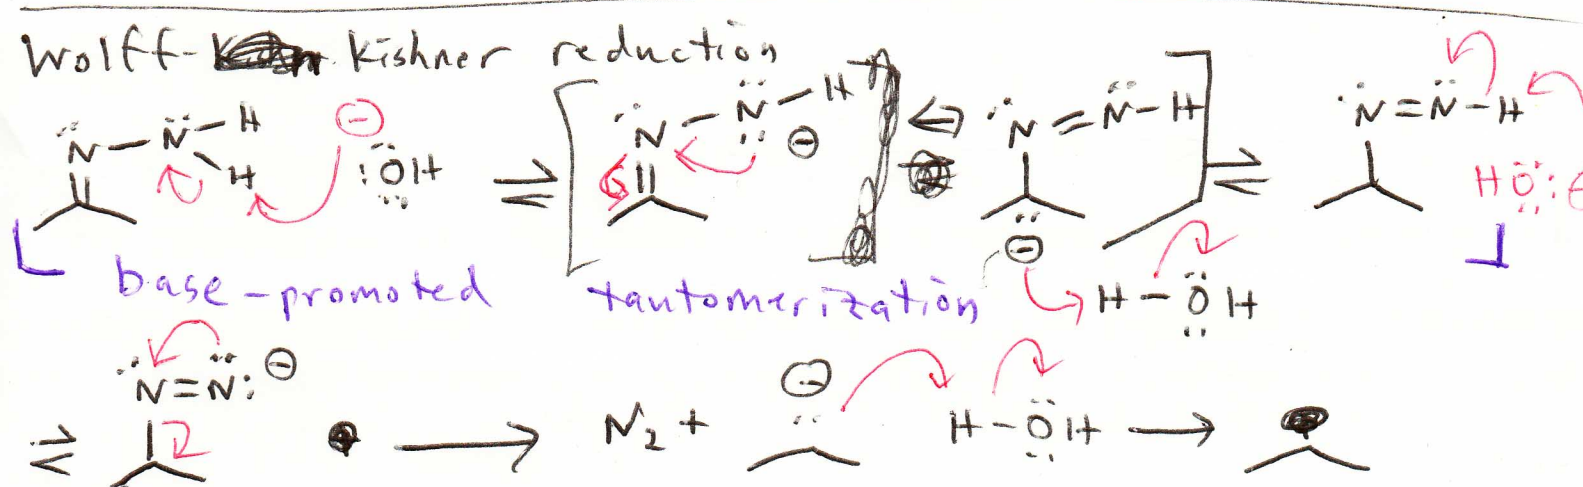 Wolff-Kishner reduction
N-N-H H ⊖ :ÖH ⇌ [ N-N-H ⊖ ⇔ N=N-H ] ⇌ N=N-H
HÖ:
⊖ H-ÖH
base-promoted tautomerization
N=N: ⊖
⇌ → N2 + ⊖ H-ÖH →